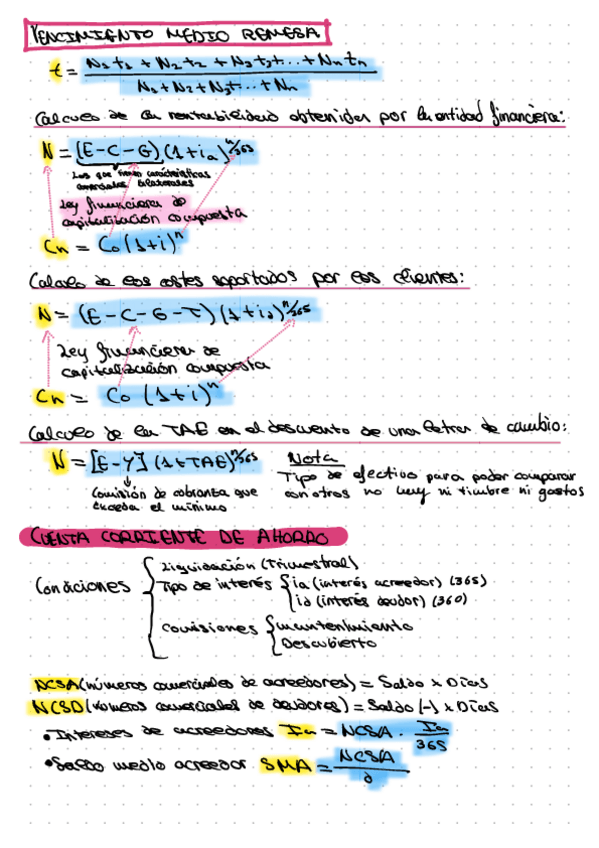 VENCIMIENTO MEDIO REMESA
t = N₁t₁ + N₂t₂ + N₃t₃+...+ Nₙtₙ
N₁+N₂+N₃+...+Nₙ
Cálculo de la rentabilidad obtenida por la entidad financiera:
N = (E-C-G)(1+ia)^n/365
Los que tienen características
comerciales bilaterales
Ley financiera de
capitalización compuesta
Cn = Co(1+i)^n
Cálculo de los costes soportados por los clientes:
N = (E-C-G-T)(1+id)^n/365
Ley financiera de
capitalización compuesta
Cn = Co (1+i)^n
Cálculo de la TAE en el descuento de una letra de cambio:
N = [E-Y](1+TAE)^n/365
Nota
Comisión de cobranza que
exceda el mínimo
Tipo de efectivo para poder comparar
con otros no hay ni timbre ni gastos
CUENTA CORRIENTE DE AHORRO
Condiciones
Liquidación (Trimestral)
Tipo de interés
ia (interés acreedor) (365)
id (interés deudor) (360)
Comisiones
mantenimiento
Descubierto
NCSA (números comerciales de acreedores) = Saldo x Días
NCSD (números comerciales de deudores) = Saldo (-) x Días
• Intereses de acreedores Ia = NCSA · Ia/365
• Saldo medio acreedor SMA = NCSA/d